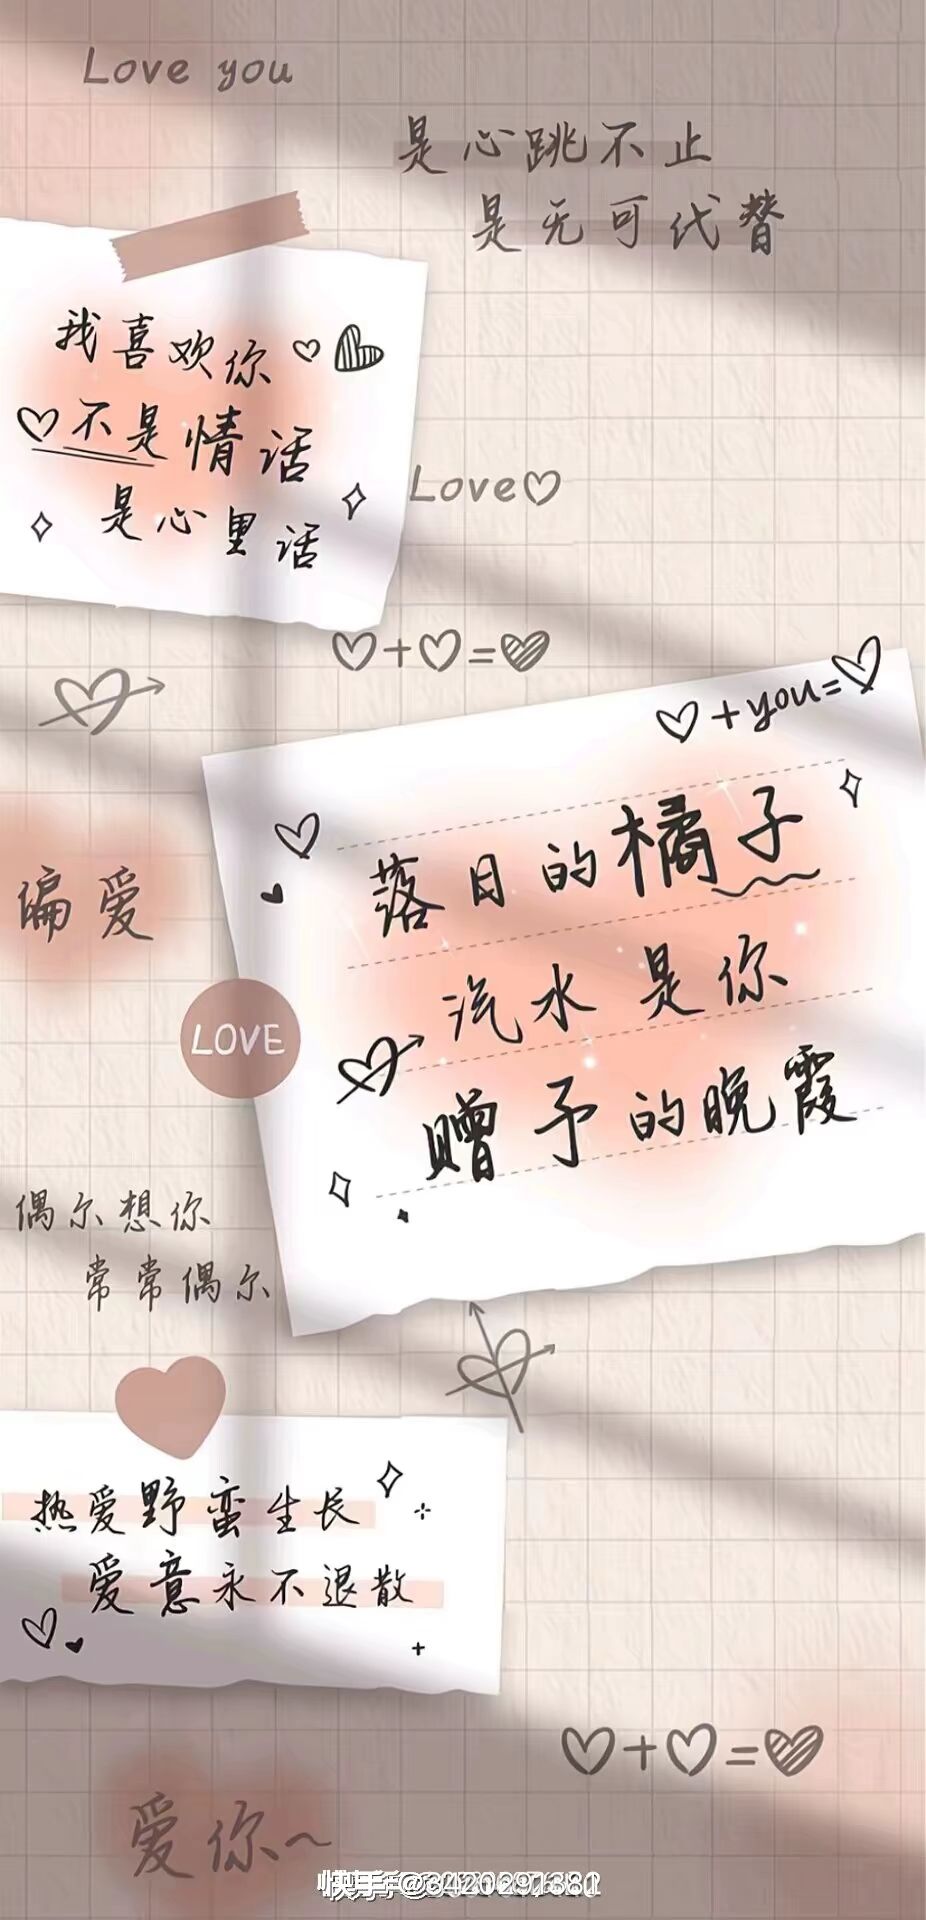 Love you
是心跳不止
是无可代替
我喜欢你
不是情话
是心里话
Love
+ =
+you=
落日的橘子
汽水是你
赠予的晚霞
偏爱
LOVE
偶尔想你
常常偶尔
热爱野蛮生长
爱意永不退散
+ =
爱你~
快手